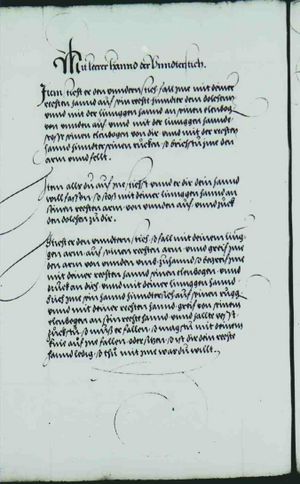 Mit leerer hannd der Unnderstich.
Item stest er den unndern stich, so fall Ime mit deiner
rechten hannd auf sein recht hinnder dem dolchen
unnd mit der linnggen hannd an seinen elenbogen
von unnden auf unnd mit der linnggen hannd
stos Im seinen elenbogen von dir unnd mit der rechten
hannd hinnder seinen rucken, so brichstu Ime den
arm unnd fellt.
Item alls du auf Ime sichst unnd er dir dein hannd
will fassen, so stos mit deiner linnggen hannd an
seinen rechten arm von unnden auf unnd zuck
den dolchen zu dir.
Stest er den unndern stich, so fall mit deinem linng-
gen arm auf seinen rechten arm unnd greif Ime
den arm von unnden unnd zuhannd, so begreif Ime
mit deiner rechten hannd seinen elenbogen unnd
druck an dich unnd mit deiner linnggen hannd
stos Ime sein hannd hinndersich auf seinen rugg
unnd mit deiner rechten hannd greif von seinen
elenbogen an sein recht hannd unnd hallt vesst
zuckstu, so mues er fallen, so magstu mit deinem
knie auf Ime fallen oder sitzen, so ist dir dein rechte
hannd ledig, so thu mit Ime was du willt.